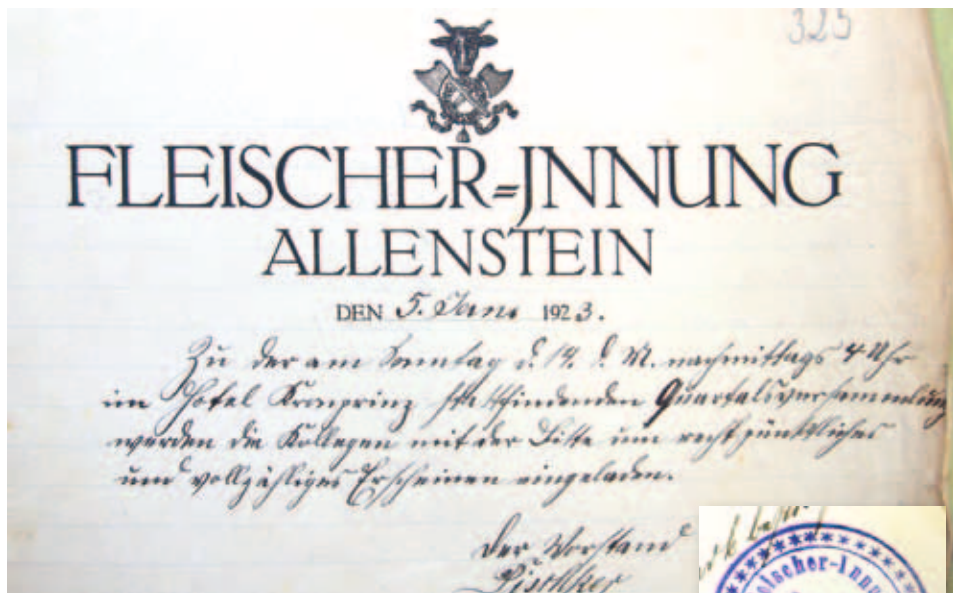 325
FLEISCHER=JNNUNG
ALLENSTEIN
DEN 5. Janr 1923.
Zu der am Sonntag d. 14. d. M. nachmittags 4 Uhr
im Hotel Kronprinz stattfindenden Quartalsversammlung
werden die Kollegen mit der Bitte um recht pünktliches
und vollzähliges Erscheinen eingeladen.
Der Vorstand
Fleischer-Inn